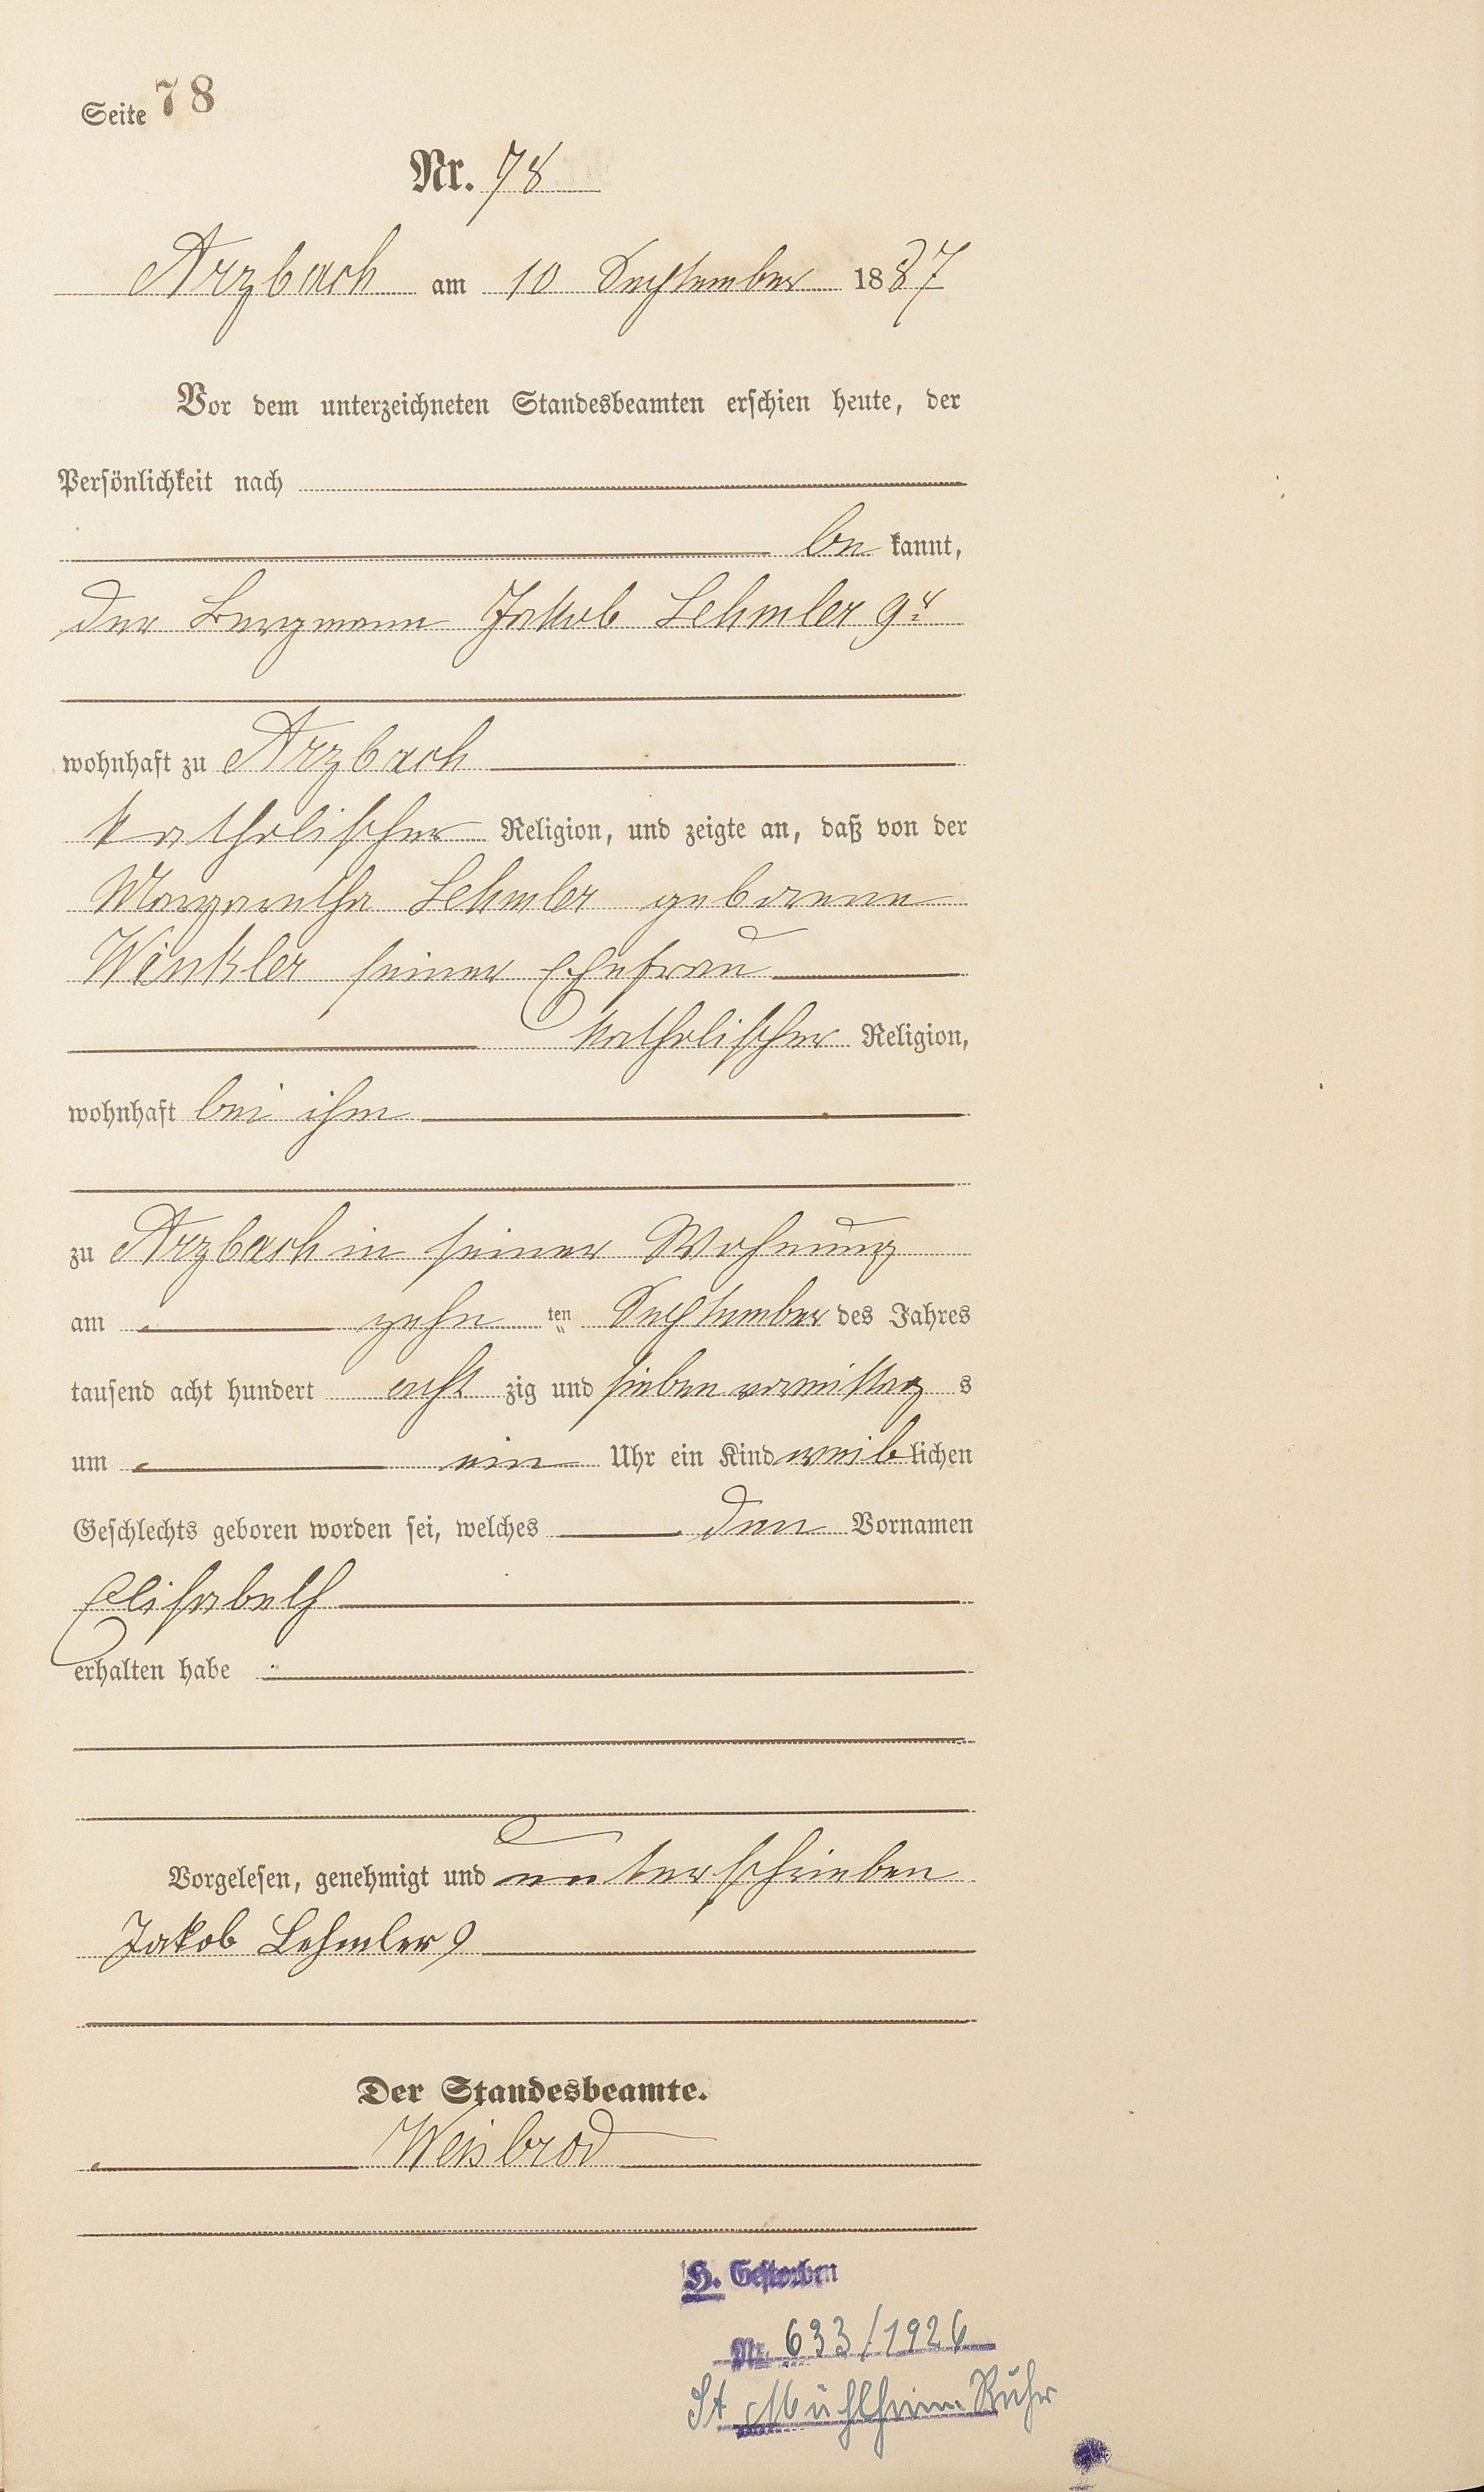 Seite 78
Nr. 78
Arzbach am 10 September 1887
Vor dem unterzeichneten Standesbeamten erschien heute, der
Persönlichkeit nach
be kannt,
der Bergmann Jakob Lehmler 9r
wohnhaft zu Arzbach
katholischer Religion, und zeigte an, daß von der
Margaretha Lehmler geborene
Winkler seiner Ehefrau
katholischer Religion,
wohnhaft bei ihm
zu Arzbach in seiner Wohnung
am zehn ten September des Jahres
tausend acht hundert acht zig und sieben vormittag s
um ein Uhr ein Kind weib lichen
Geschlechts geboren worden sei, welches den Vornamen
Elisabeth
erhalten habe
Vorgelesen, genehmigt und unterschrieben
Jakob Lehmler 9
Der Standesbeamte.
Weisbrod
H. Gestorben
Nr. 633/1926
St Mühlheim Ruhr